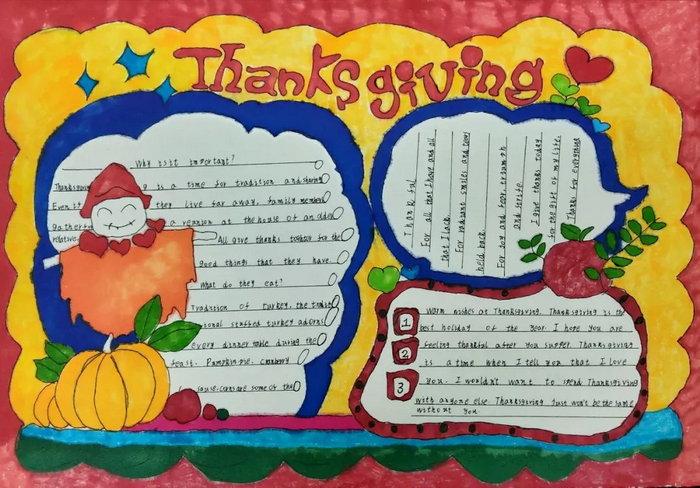 Thanksgiving
Why is it important?
Thanksgiving is a time for tradition and sharing
Even if they live far away, family members
gather for a reunion at the house of an older
relative. All give thanks together for the
good things that they have.
What do they eat?
Tradition of turkey, the tradit
ional stuffed turkey adorns
every dinner table during the
feast. Pumpkin pie, cranberry
sause. corns are some of the
Thankful
For all that I have and all
that I lack
For radiant smiles and tears
held back
For joy and tears triumph
and strife
I give thanks today
for the gift of my life.
Thanks for everything
1
2
3
Warm wishes at Thanksgiving. Thanksgiving is the
best holiday of the year. I hope you are
feeling thankful after you supper. Thanksgiving
is a time when I tell you that I love
you. I wouldn't want to spend Thanksgiving
with anyone else Thanksgiving Just won't be the same
without you